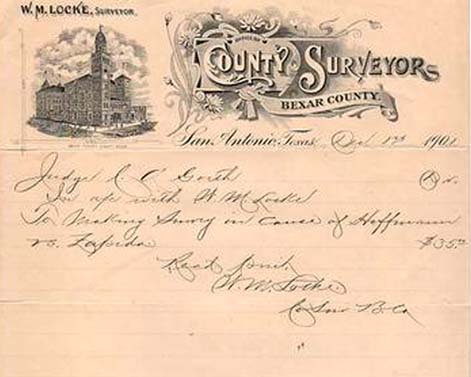 W. M. LOCKE, SURVEYOR.
OFFICE OF
COUNTY SURVEYOR
BEXAR COUNTY.
San Antonio, Texas, Dec 1901
Judge C. C. Dr.
In a/c with W. M. Locke
To Making Survey in cause of Hoffmann
vs. Zapeda $35.00
W. M. Locke
Co Sur B. Co